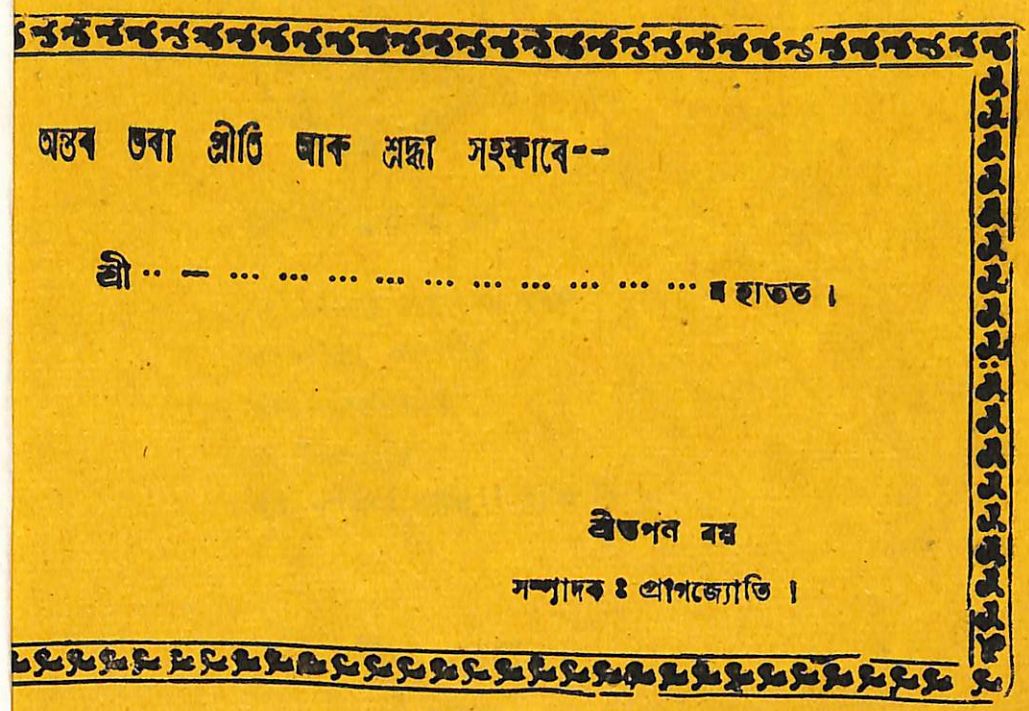 অন্তৰ ভৰা প্ৰীতি আৰু শ্ৰদ্ধা সহকাৰে--
শ্ৰী ·· — ··· ··· ··· ··· ··· ··· ··· ··· ··· ··· ৰ হাতত ।
শ্ৰীতপন বয়
সম্পাদক : প্ৰাগজ্যোতি ।